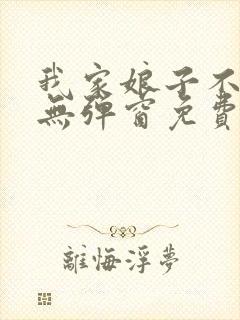 我家娘子不
無彈窗免費
離悔浮夢